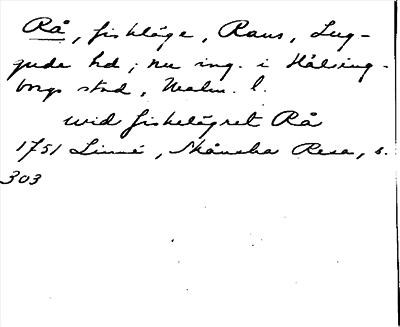 Rå, fiskläge, Raus, Lug-
gude hd; nu ing. i Hälsing-
borgs stad, Malm. l.
wid fiskelägret Rå
1751 Linné, Skånska Resa, s.
303